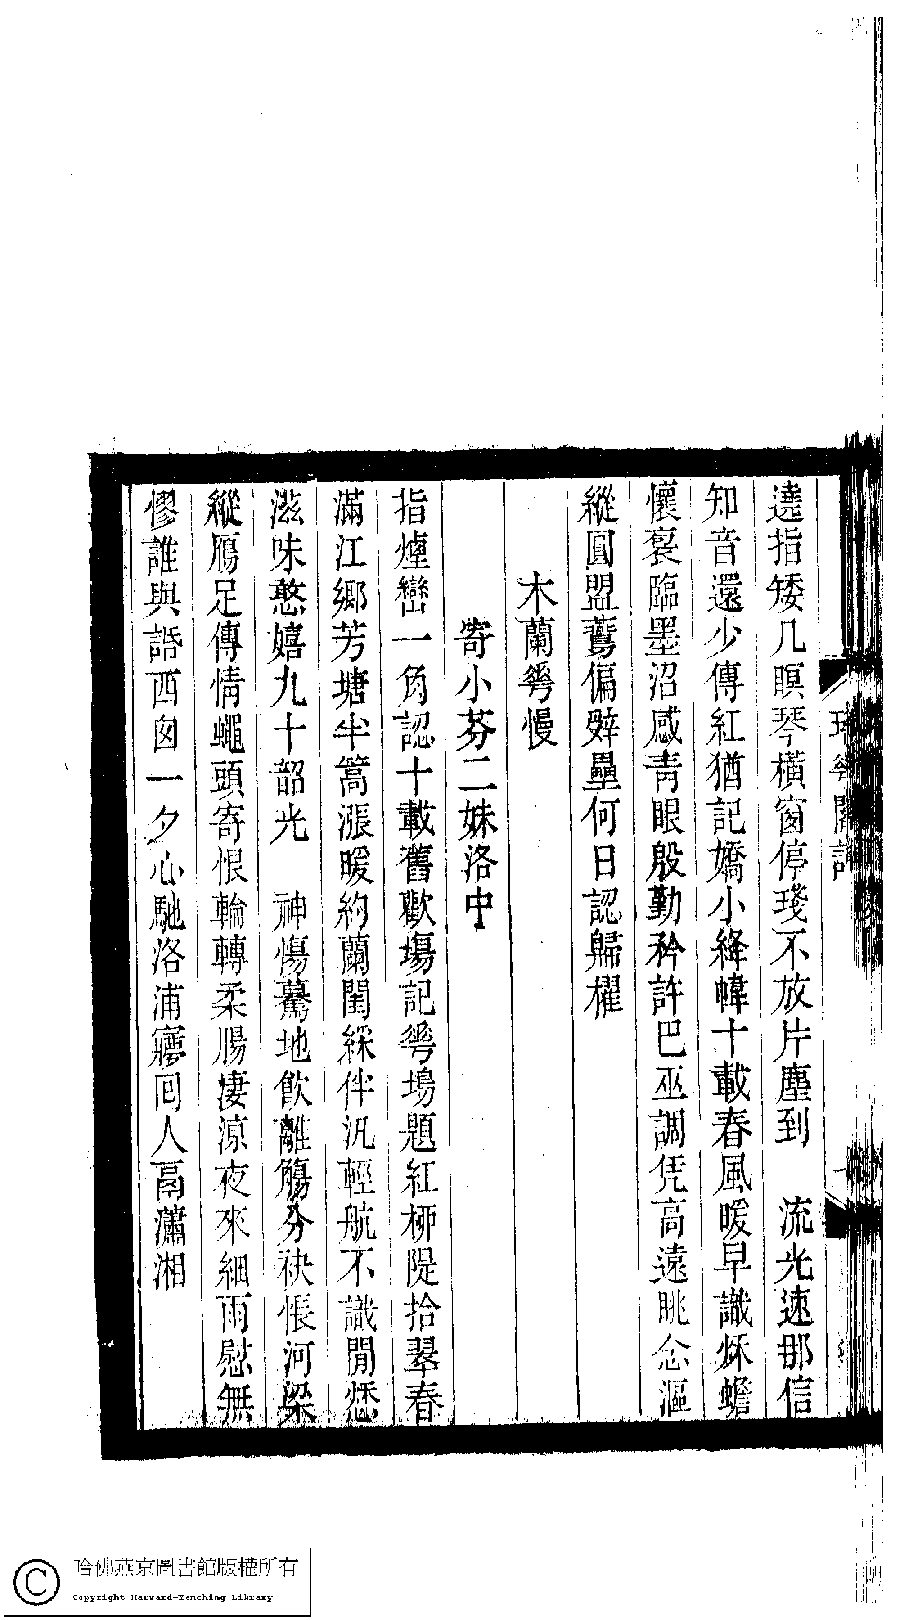 遶指矮几瞑琴橫窗停琖不放片塵到　流光速那信
知音還少傳紅猶記嬌小絳幃十載春風暖早識烁蟾
懷裒臨墨沼感青眼殷勤矜許巴巫調凭高遠眺念漚
縱圓盟鷰偏辥壘何日認歸櫂
木蘭蕚慢
寄小芬二妹洛中
指煙巒一角認十載舊歡場記蕚塲題紅桺隄拾翠春
滿江鄉芳塘半篙漲暖約蘭閨綵伴汎輕航不識閒愁
滋味憨嬉九十韶光　神傷驀地飲離觴分袂悵河梁
縱鴈足傳情蠅頭寄恨輪轉柔腸淒涼夜來細雨慰無
憀誰與話西囪一夕心馳洛浦寱回人鬲瀟湘
哈佛燕京圖書館版權所有
Copyright Harvard-Yenching Library